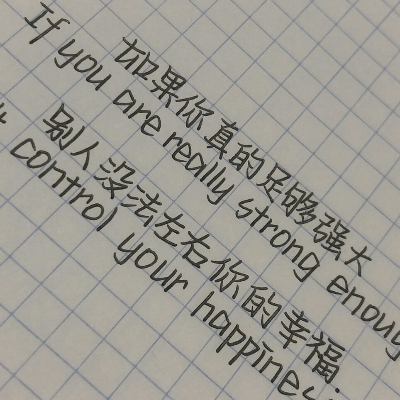 如果你真的足够强大
If you are really strong
别人没法左右你的幸福.
control your